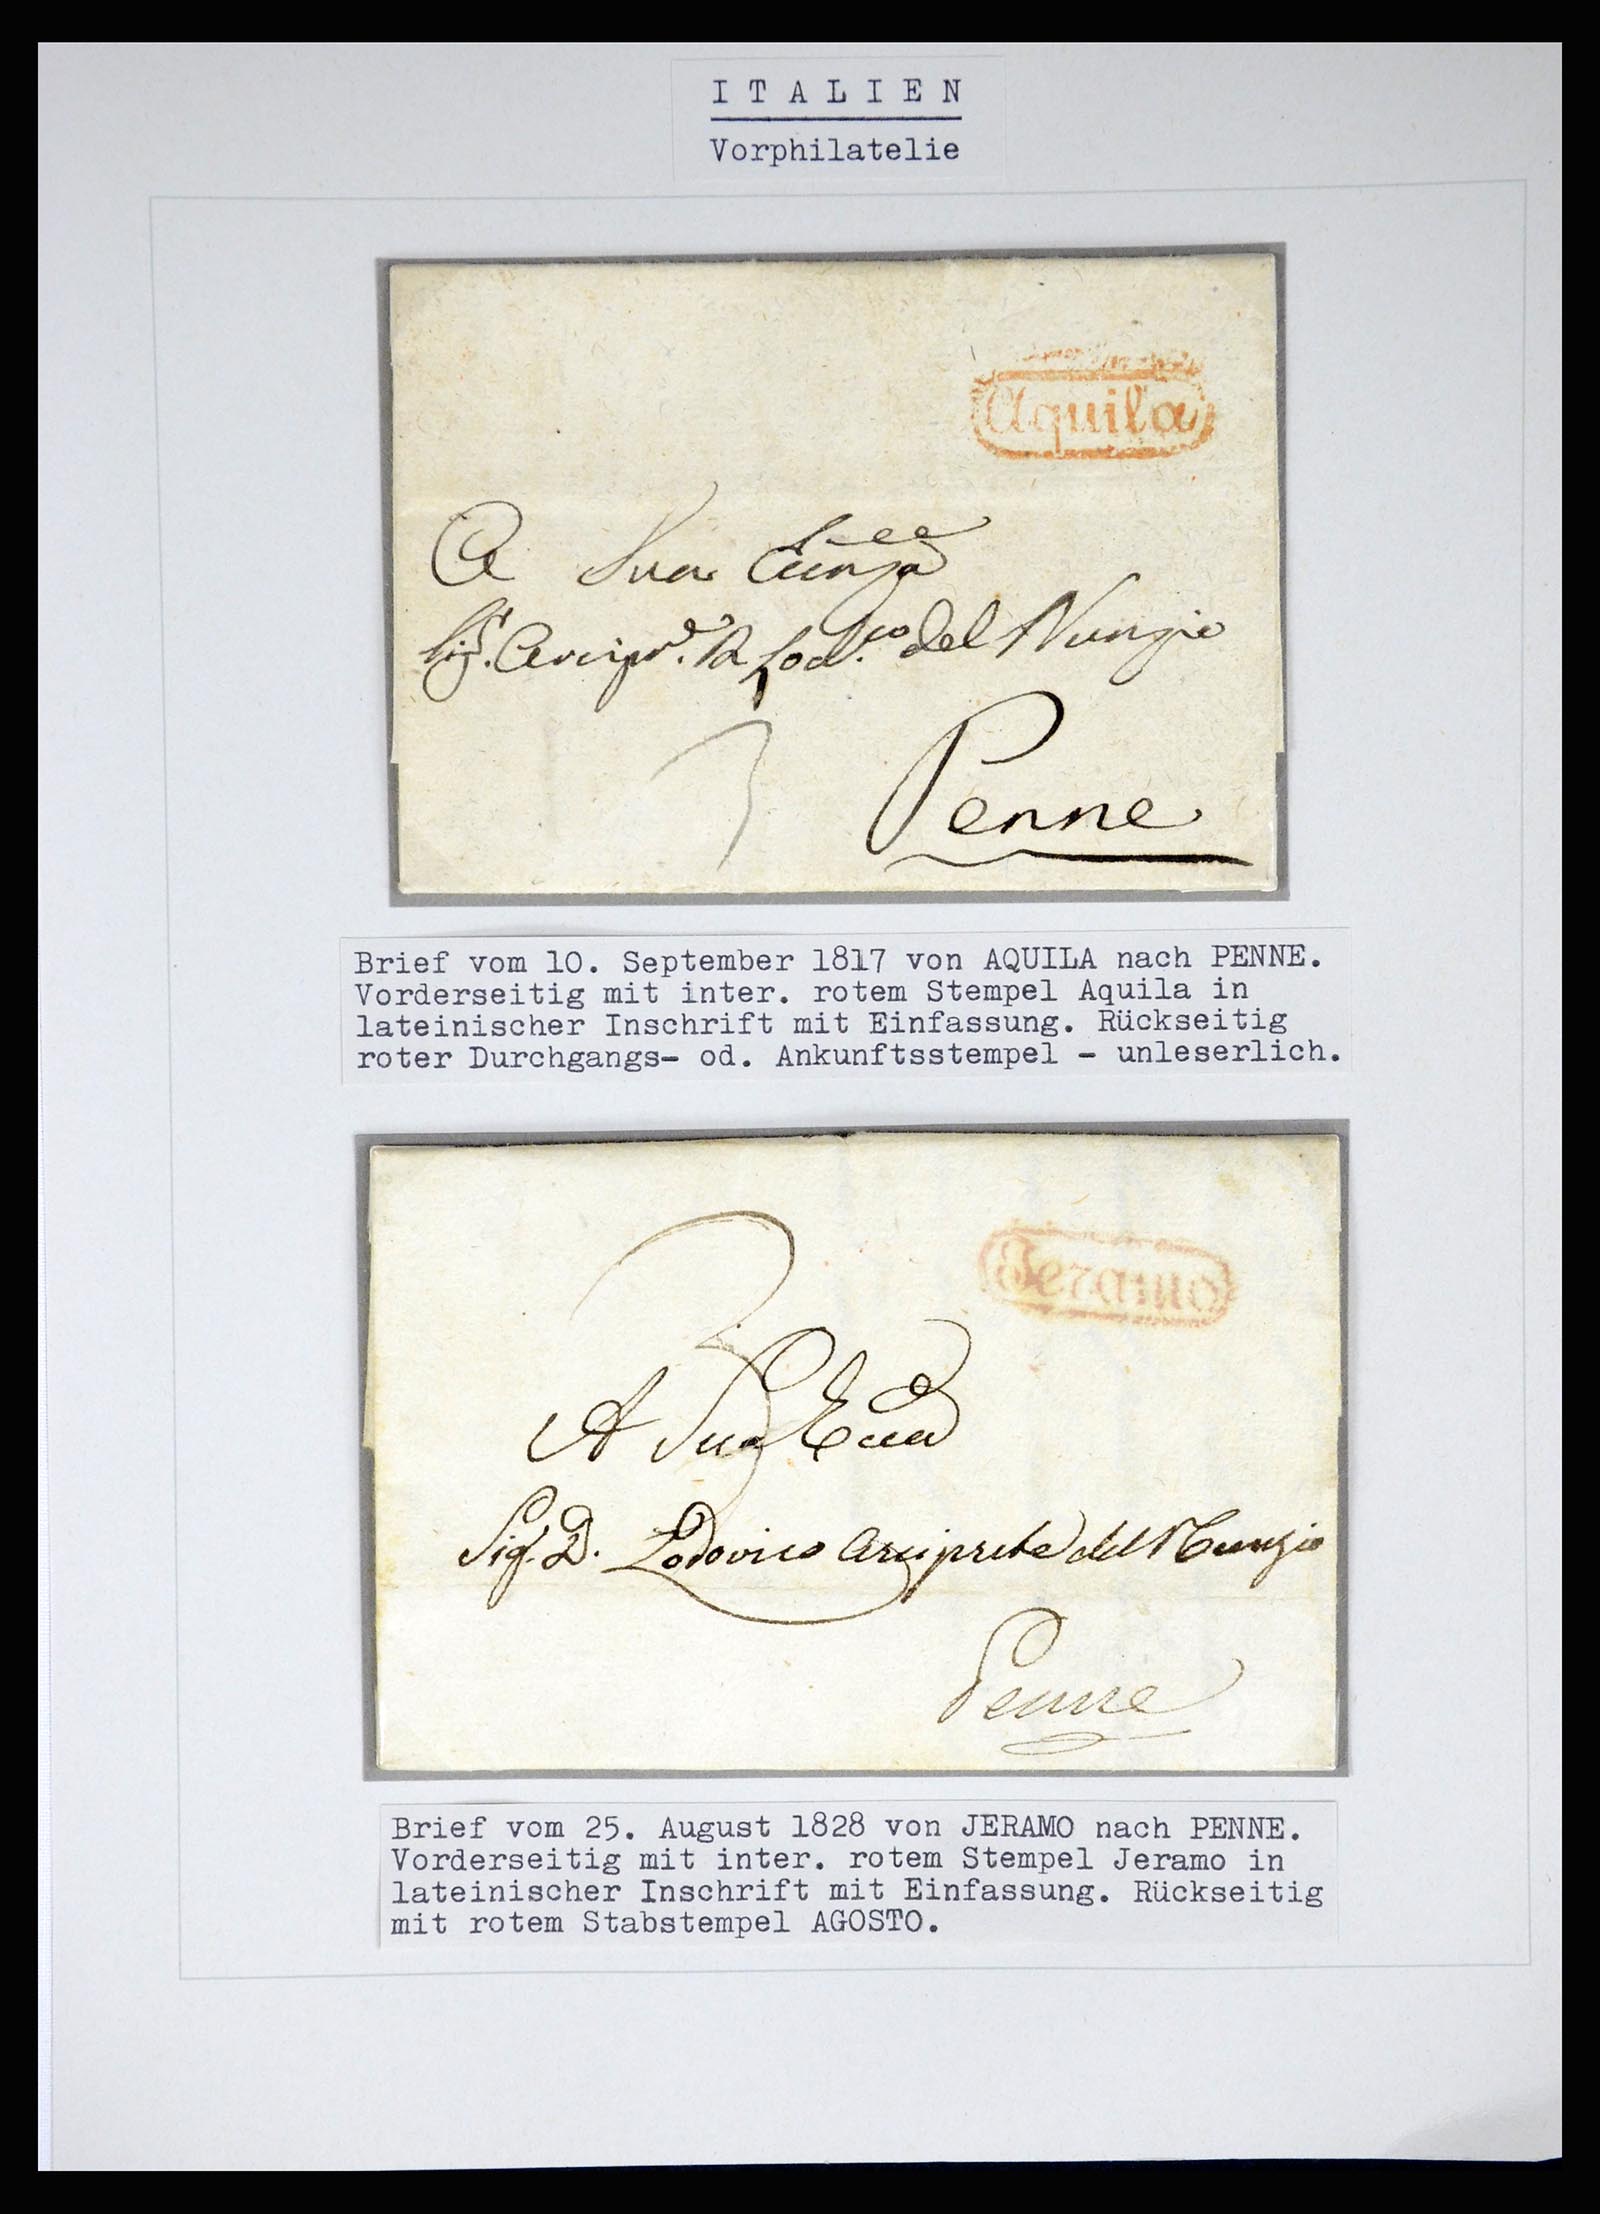 ITALIEN
Vorphilatelie
Aquila
A Sua
Sig.r Arcipr.e D Lod.co del Nunzio
3
Penne
Brief vom 10. September 1817 von AQUILA nach PENNE.
Vorderseitig mit inter. rotem Stempel Aquila in
lateinischer Inschrift mit Einfassung. Rückseitig
roter Durchgangs- od. Ankunftsstempel - unleserlich.
Teramo
3
A Sua
Sig. D. Lodovico Arciprete del Nunzio
Penne
Brief vom 25. August 1828 von JERAMO nach PENNE.
Vorderseitig mit inter. rotem Stempel Jeramo in
lateinischer Inschrift mit Einfassung. Rückseitig
mit rotem Stabstempel AGOSTO.